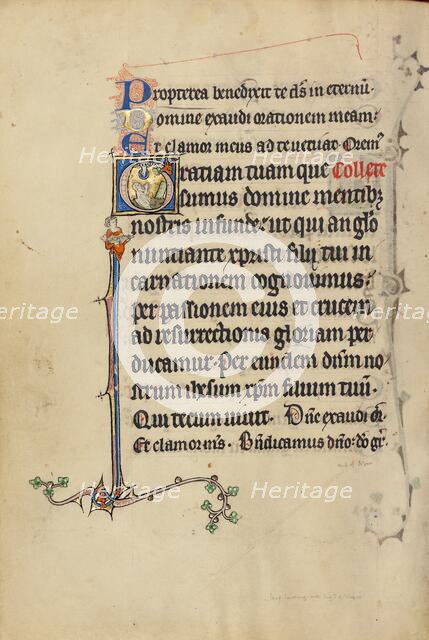 Propterea benedixit te ds in eternu.
Domine exaudi orationem meam.
Et clamor meus ad te veniat Orem9
Gratiam tuam que Collete
sumus domine mentibz
nostris infunde. ut qui anglo
nunciante xpristi filii tui in
carnationem cognovimus.
per passionem eius et crucem
ad resurrectionis gloriam per
ducamur. Per eundem dnm no
strum ihesum xpm filium tuu.
Qui tecum vivit. Dne exaudi or
Et clamor ms. Bndicamus dno. do gr.
Heritage Heritage
Heritage Heritage Heritage
Heritage Heritage